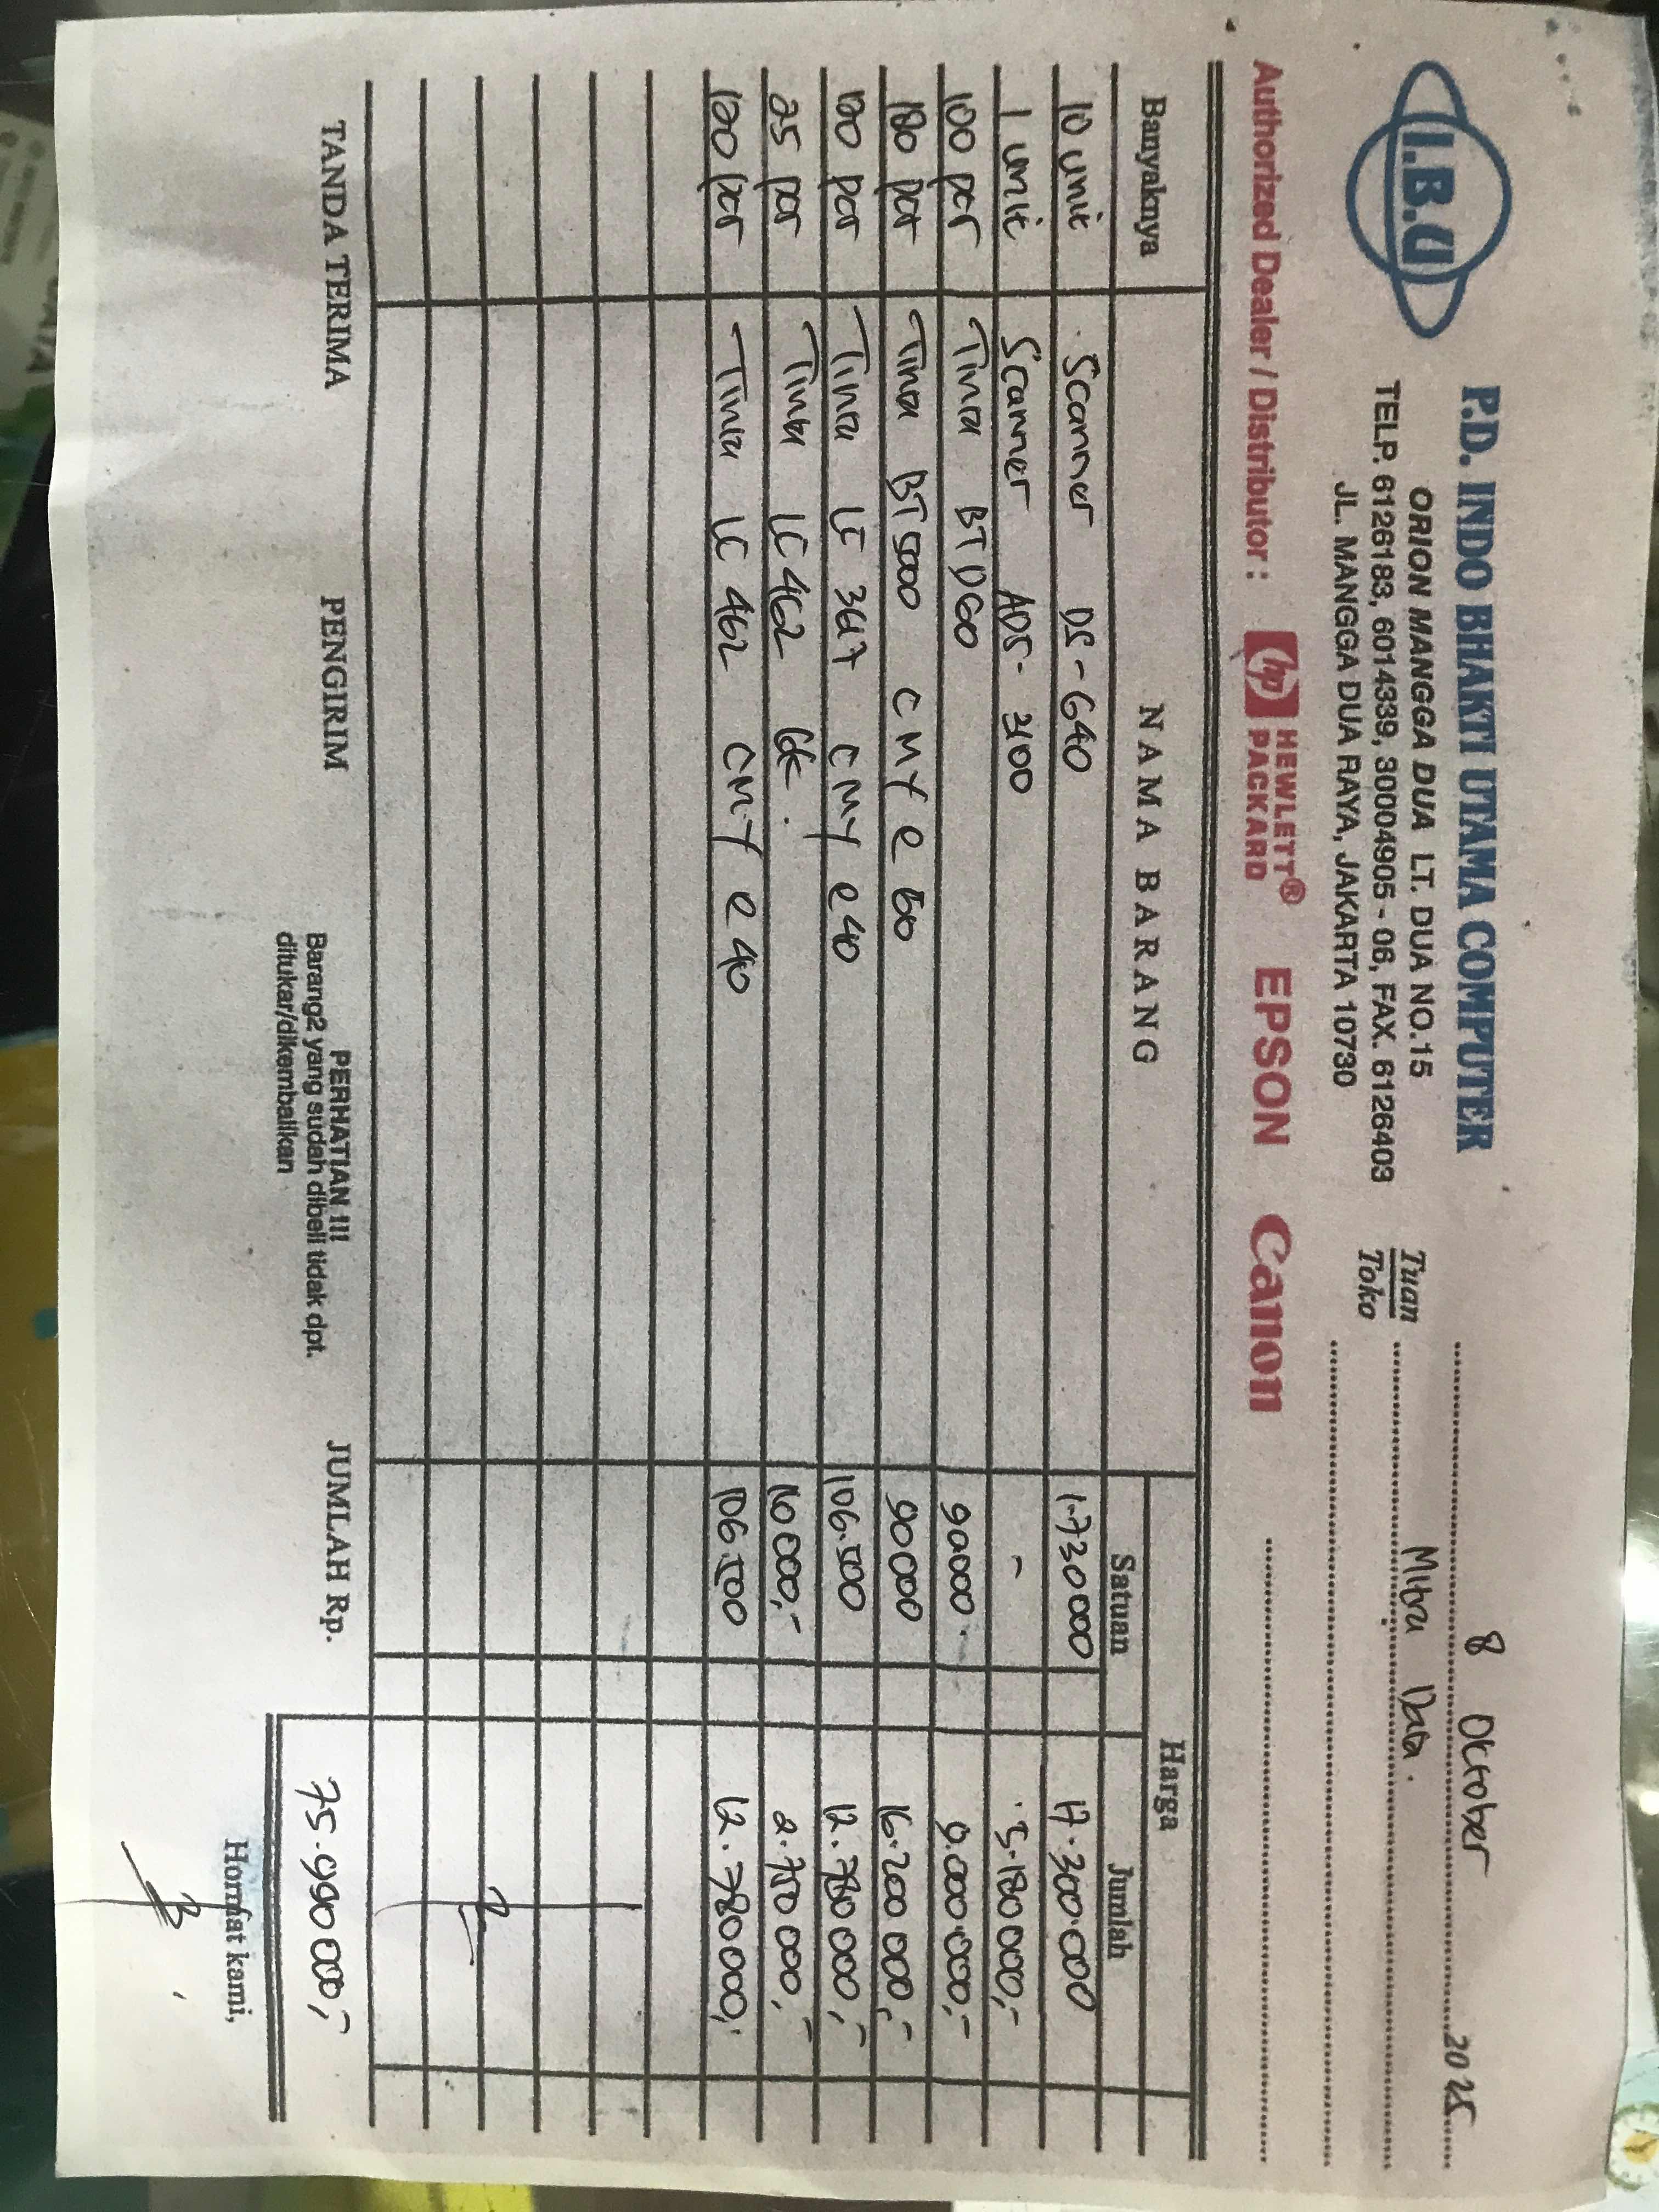 I.B.U
P.D. INDO BHAKTI UTAMA COMPUTER
ORION MANGGA DUA LT. DUA NO.15
TELP. 6126183, 6014339, 30004905 - 06, FAX. 6126403
JL. MANGGA DUA RAYA, JAKARTA 10730
8 October 2025
Tuan
Toko
Mitra Data.
Authorized Dealer / Distributor : hp HEWLETT® PACKARD EPSON Canon
Banyaknya NAMA BARANG Harga
Satuan Jumlah
10 unit Scanner DS-640 1.730000 17.300.000
1 unit Scanner ADS- 3100 - 5.180000,-
100 pcs Tinta BTD60 90000. 9.000.000,-
180 pcs Tinta BT5000 CMY @ 60 90000 16.200000,-
120 pcs Tinta 3617 CMY @ 40 106.500 12.780000,-
25 pcs Tinta LC462 110000,- 2.750000,-
120 pcs Tinta LC 462 CMY @ 40 106.500 12.780000,-
TANDA TERIMA PENGIRIM JUMLAH Rp. 75.990000,-
PERHATIAN !!!
Barang2 yang sudah dibeli tidak dpt.
ditukar/dikembalikan
Hormat kami,